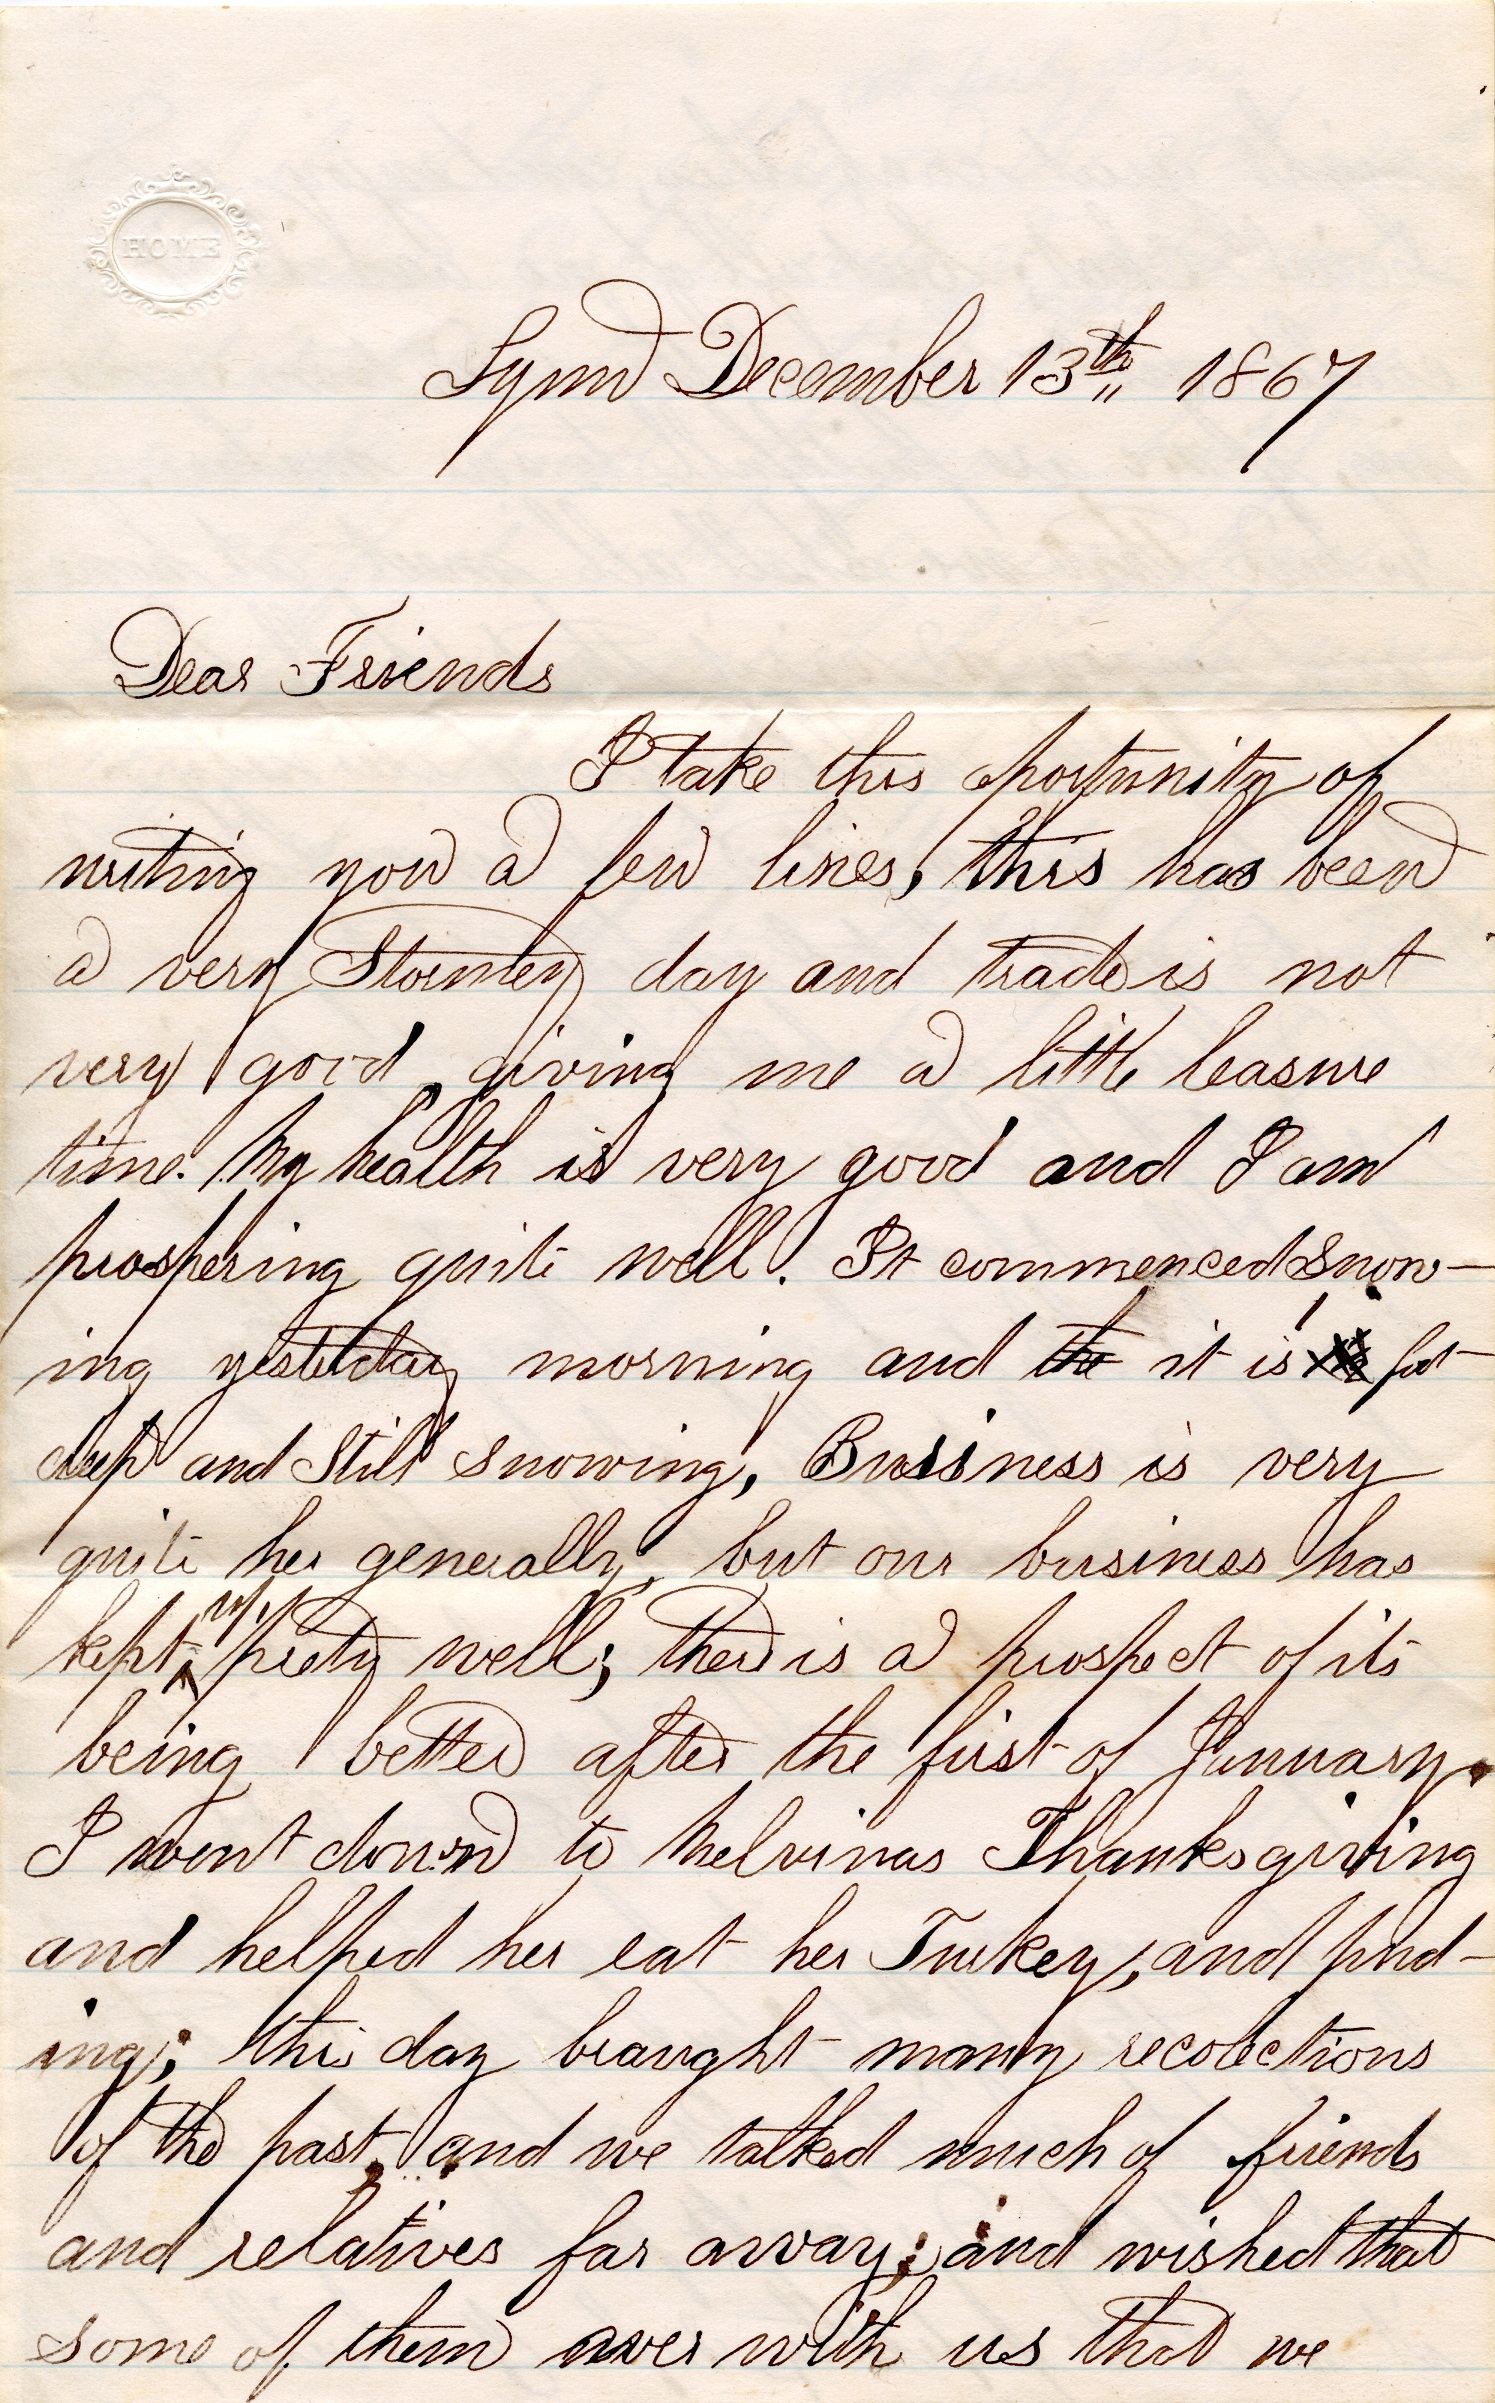 HOME
Lynn December 13th 1867
Dear Friends
I take this oportunity of
writing you a few lines, this has been
a very Stormey day and trade is not
very good, giving me a little leasure
time. My health is very good and I am
prospering quite well. It commenced Snow-
ing yesterday morning and the it is 1 fot
deep and Still snowing, Business is very
quite her generally, but our business has
kept up prety well; there is a prospect of its
being better after the first of January.
I went down to Melvinas Thanksgiving
and helped her eat her Turkey, and pud-
ing; this day braught many recolections
of the past, and we talked much of friends
and relatives far away; and wished that
some of them wer with us that we